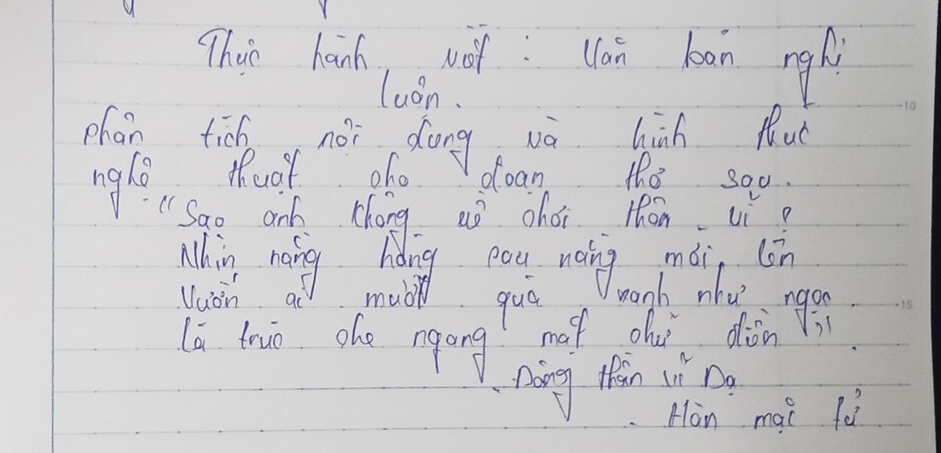 Thực hành viết : Văn bản nghị
luận.
phân tích nội dung và hình thức
nghệ thuật cho đoạn thơ sau.
"Sao anh không về chơi thôn vĩ ?
Nhìn nắng hàng cau nắng mới lên
Vườn ai mướt quá xanh như ngọc
Lá trúc che ngang mặt chữ điền"
Đây thôn vĩ Dạ
Hàn mặc tử